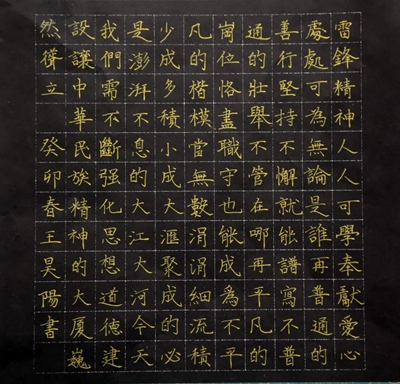 雷鋒精神人人可學奉獻愛心
處處可為無論是誰再普通的
善行堅持不懈就能譜寫不普
通的壯舉不管在哪再平凡的
崗位恪盡職守也能成爲不平
凡的楷模當無數涓涓細流積
少成多積小成大滙聚成的必
是澎湃不息的大江大河今天
我們需不斷强化思想道德建
設讓中華民族精神的大厦巍
然聳立 癸卯春王昊陽書